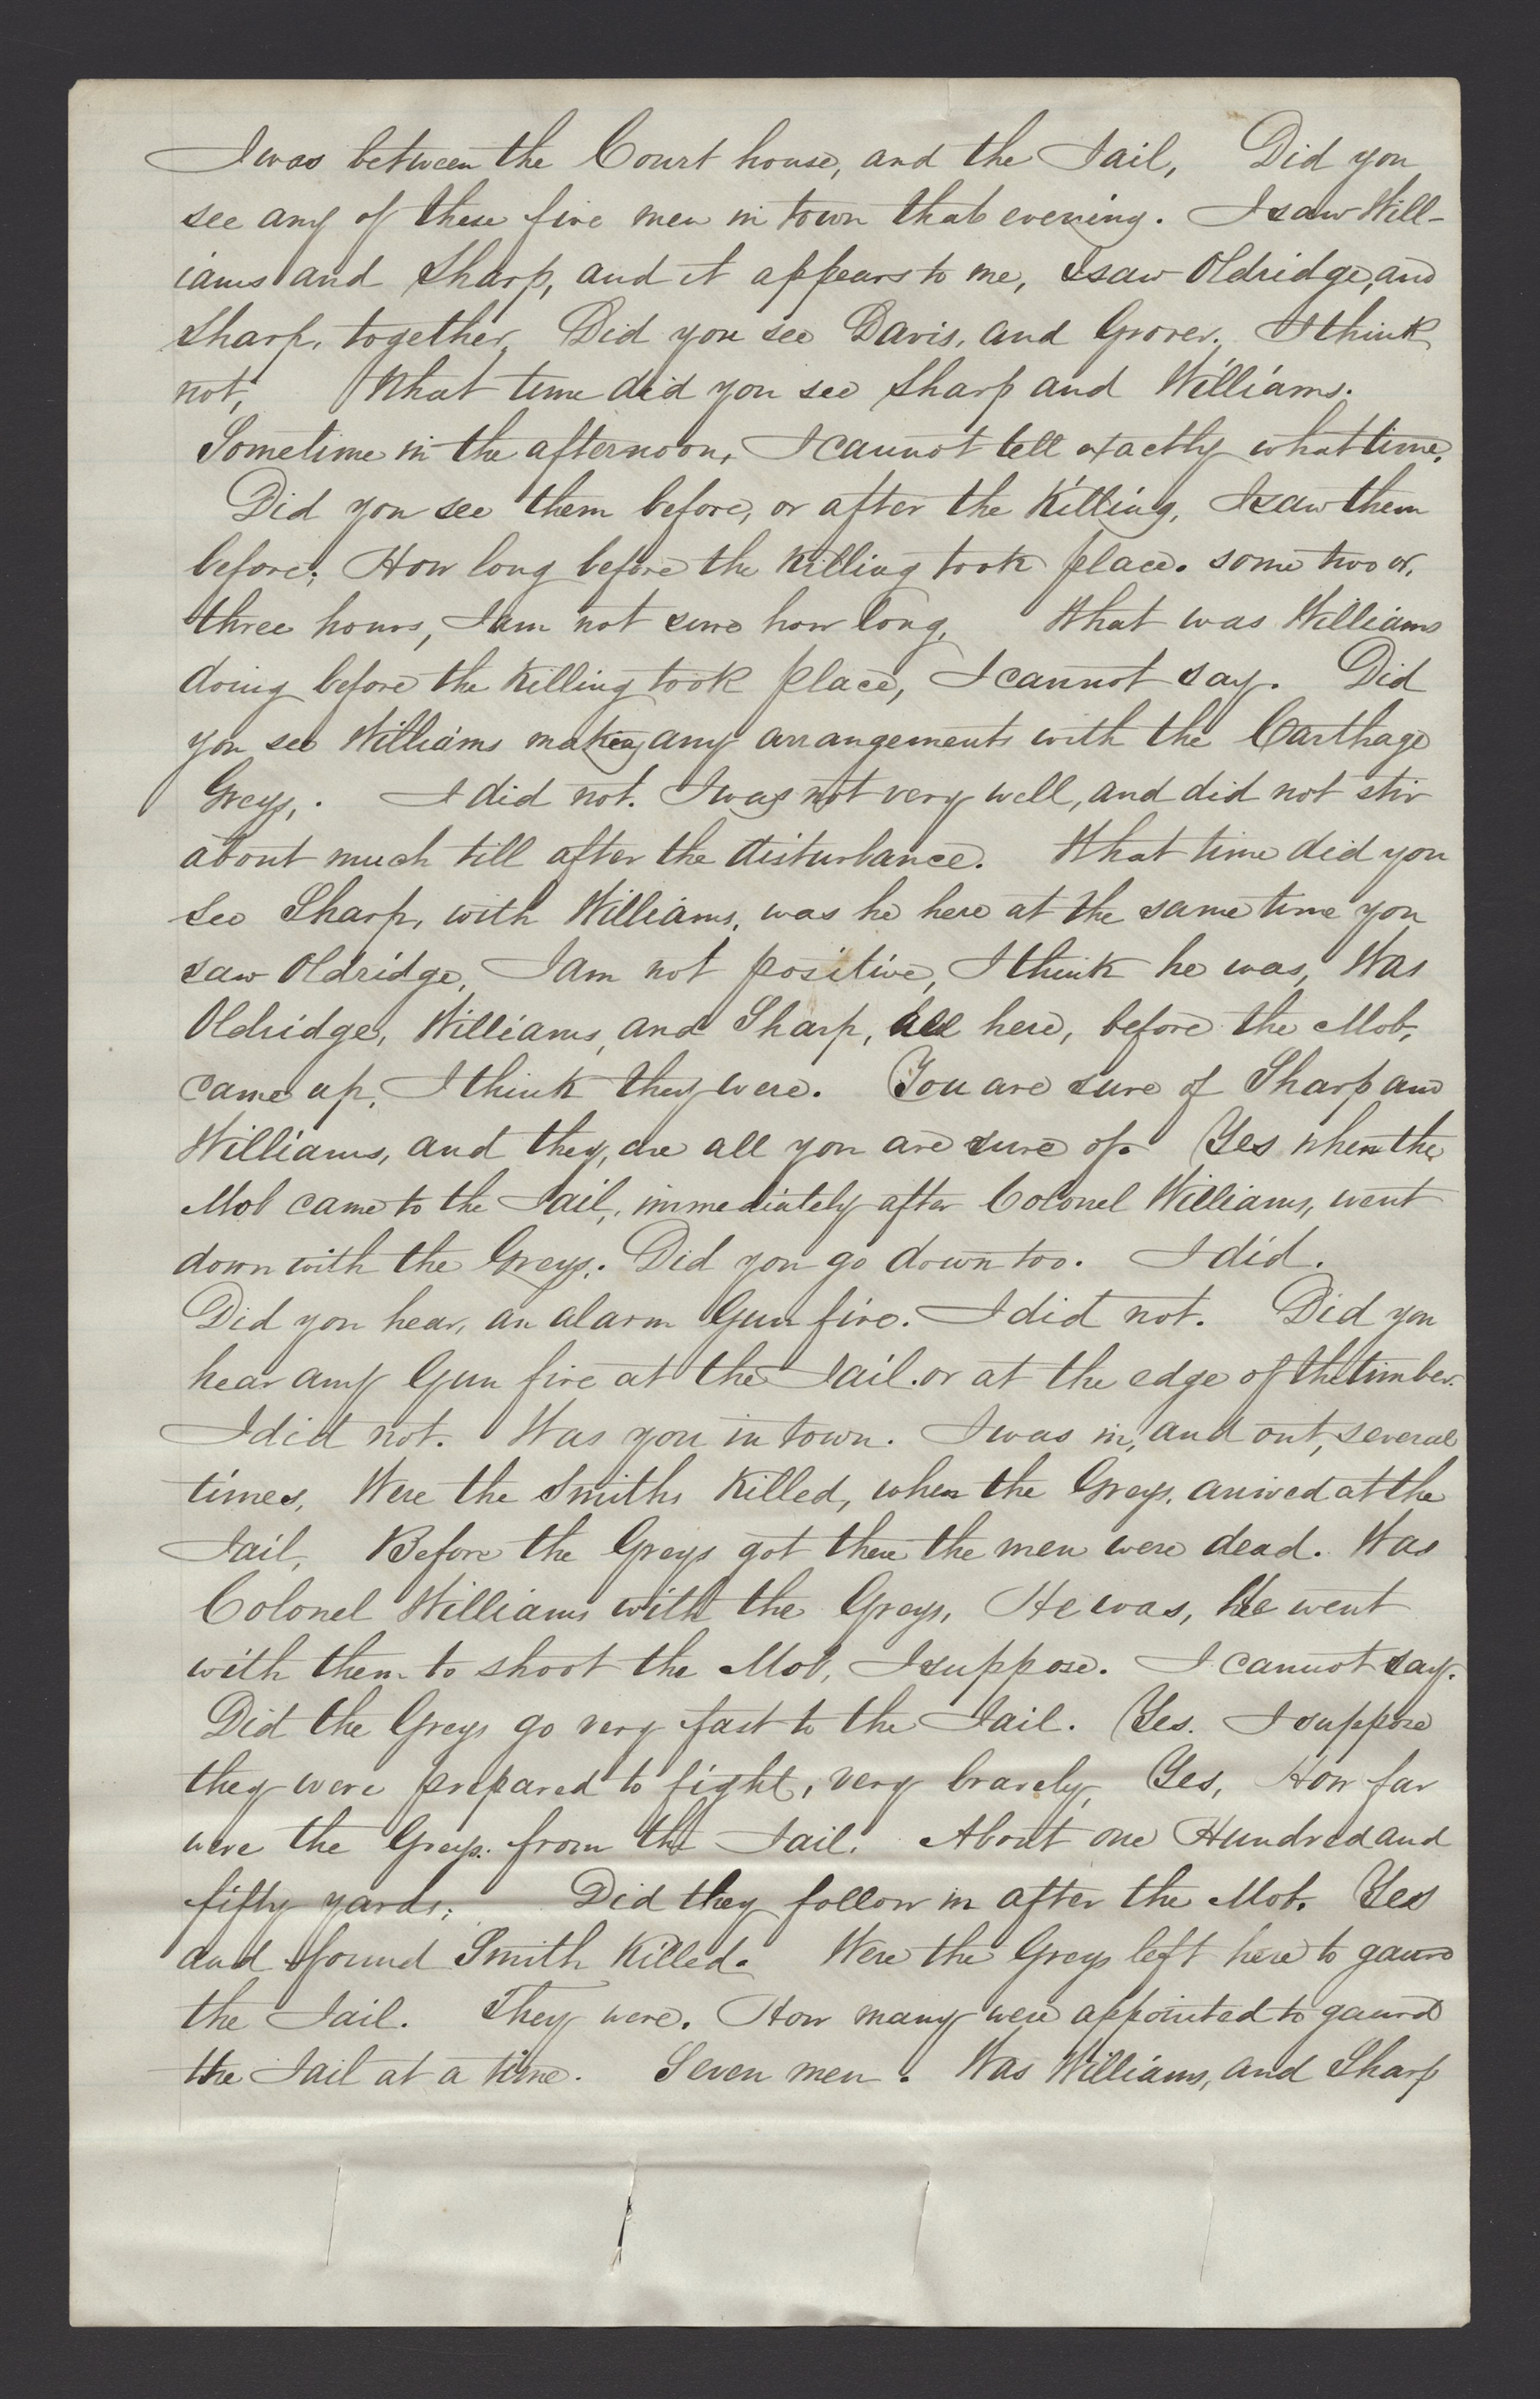 I was between the Court house, and the Jail, Did you
see any of these five men in town that evening. I saw Will-
iams and Sharp, and it appears to me, I saw Oldridge, and
Sharp, together, Did you see Davis, and Grover. I think
not, What time did you see Sharp and Williams.
Sometime in the afternoon, I cannot tell exactly what time.
Did you see them before, or after the Killing, I saw them
before; How long before the Killing took place. some two or,
three hours, I am not sure how long, What was Williams
doing before the Killing took place, I cannot say. Did
you see Williams making any arrangements with the Carthage
Greys,. I did not. I was not very well, and did not stir
about much till after the disturbance. What time did you
see Sharp, with Williams, was he here at the same time you
saw Oldridge, I am not positive, I think he was, Was
Oldridge, Williams, and Sharp, all here, before the Mob,
came up, I think they were. You are sure of Sharp and
Williams, and they, are all you are sure of. Yes when the
Mob came to the Jail, immediately after Colonel Williams, went
down with the Greys,. Did you go down too. I did.
Did you hear, an alarm Gun fire. I did not. Did you
hear any Gun fire at the Jail. or at the edge of the timber.
I did not. Was you in town. I was in, and out, several
times, Were the Smiths Killed, when the Greys, arrived at the
Jail, Before the Greys got there the men were dead. Was
Colonel Williams with the Greys, He was, He went
with them to shoot the Mob, I suppose. I cannot say.
Did the Greys go very fast to the Jail. Yes. I suppose
they were prepared to fight, very bravely, Yes, How far
were the Greys. from the Jail. About one Hundred and
fifty yards; Did they follow in after the Mob. Yes
and found Smith Killed. Were the Greys left here to gaurd
the Jail. They were. How many were appointed to gaurd
the Jail at a time. Seven men. Was Williams, and Sharp